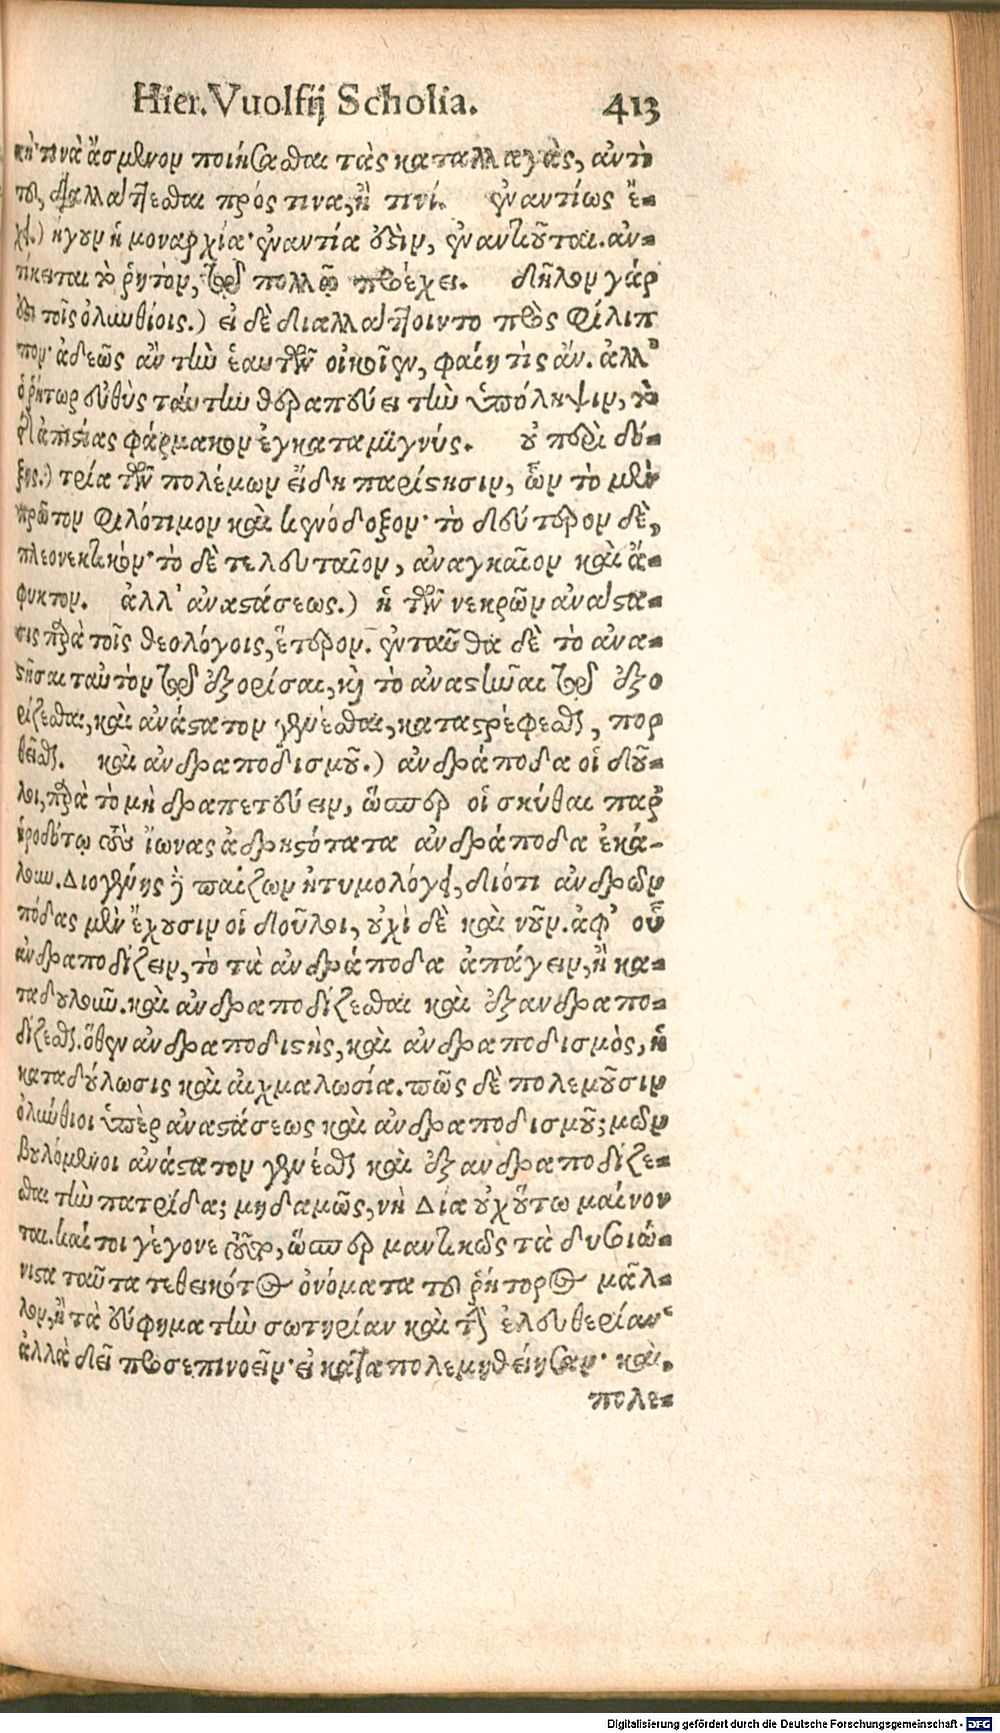 Hier. Vuolfij Scholia. 413
κή τινα ἄσμενον ποιήσασθαι τὰς καταλλαγὰς, ἀντὶ
τοῦ, διαλλάττεσθαι πρός τινα, ἤ τινί. ἐναντίως ἔ-
χει.) ἤγουν ἡ μοναρχία· ἐναντία ἐστὶν, ἐναντιοῦται. ἀν-
τίκειται τὸ ῥητὸν, τοῦ πολλῷ προέχει. δῆλον γάρ
ἐστι τοῖς ὀλυνθίοις.) εἰ δὲ διαλλάττοιντο πρὸς Φίλιπ
πον· ἀδεῶς ἂν τὴν ἑαυτῶν οἰκοῖεν, φαίη τὶς ἄν. ἀλλ'
ὁ ῥήτωρ εὐθὺς ταύτην θεραπεύει τὴν ὑπόληψιν, τὸ
τῆς ἀπιστίας φάρμακον ἐγκαταμιγνύς. οὐ περὶ δό-
ξης.) τρία τῶν πολέμων εἴδη παρίστησιν, ὧν τὸ μὲν
πρῶτον Φιλότιμον καὶ κενόδοξον· τὸ δεύτερον δὲ,
πλεονεκτικόν· τὸ δὲ τελευταῖον, ἀναγκαῖον καὶ ἄ-
φυκτον. ἀλλ' ἀναστάσεως.) ἡ τῶν νεκρῶν ἀνάστα-
σις παρὰ τοῖς θεολόγοις, ἕτερον. ἐνταῦθα δὲ τὸ ἀνα-
στῆσαι ταὐτὸν τῷ ἐξορίσαι, καὶ τὸ ἀναστῆναι τῷ ἐξο
ρίζεσθαι, καὶ ἀνάστατον γενέσθαι, καταστρέφεσθαι, πορ
θεῖσθαι. καὶ ἀνδραποδισμοῦ.) ἀνδράποδα οἱ δοῦ-
λοι, παρὰ τὸ μὴ δραπετεύειν, ὥσπερ οἱ σκύθαι παρ'
ἡροδότῳ τοὺς ἴωνας ἀδρηστότατα ἀνδράποδα ἐκά-
λουν. Διογένης δὲ παίζων ἠτυμολόγει, διότι ἀνδρῶν
πόδας μὲν ἔχουσιν οἱ δοῦλοι, οὐχὶ δὲ καὶ νοῦν. ἀφ' οὗ
ἀνδραποδίζειν, τὸ τὰ ἀνδράποδα ἀπάγειν, ἢ κα-
ταδουλοῦν. καὶ ἀνδραποδίζεσθαι καὶ ἐξανδραπο-
δίζεσθαι. ὅθεν ἀνδραποδιστὴς, καὶ ἀνδραποδισμὸς, ἡ
καταδούλωσις καὶ αἰχμαλωσία. πῶς δὲ πολεμοῦσιν
ὀλύνθιοι ὑπὲρ ἀναστάσεως καὶ ἀνδραποδισμοῦ; μῶν
βουλόμενοι ἀνάστατον γενέσθαι καὶ ἐξανδραποδίζε-
σθαι τὴν πατρίδα; μηδαμῶς, νὴ Δία οὐχ οὕτω μαίνον
ται. καί τοι γέγονε οὕτως, ὥσπερ μαντικῶς τὰ δυσιώ-
νιστα ταῦτα τεθεικότος ὀνόματα τοῦ ῥήτορος μᾶλ-
λον, ἢ τὰ εὔφημα τὴν σωτηρίαν καὶ τὴν ἐλευθερίαν·
ἀλλὰ δεῖ προσεπινοεῖν· εἰ καταπολεμηθείησαν· καὶ.
πολε-
Digitalisierung gefördert durch die Deutsche Forschungsgemeinschaft - DFG